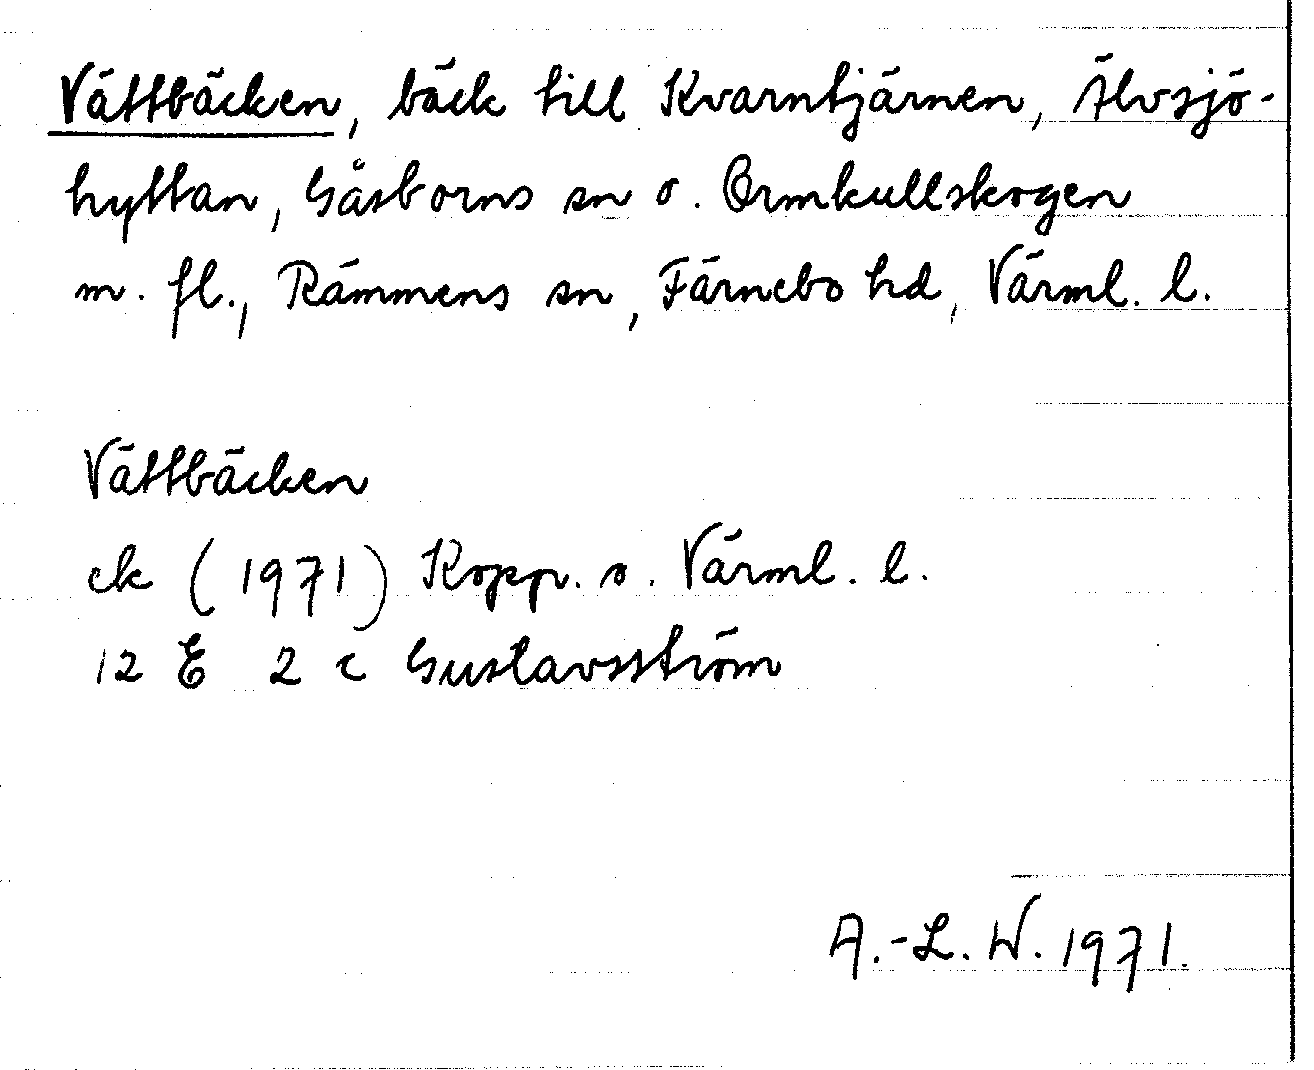 Vättbäcken, bäck till Kvarntjärnen, Älvsjö-
hyttan, Gåsborns sn o. Ormkullskogen
m. fl., Rämmens sn, Färnebo hd, Värml. l.
Vättbäcken
ek (1971) Kopp. o. Värml. l.
12 E 2 c Gustavsström
A.-L. W. 1971.